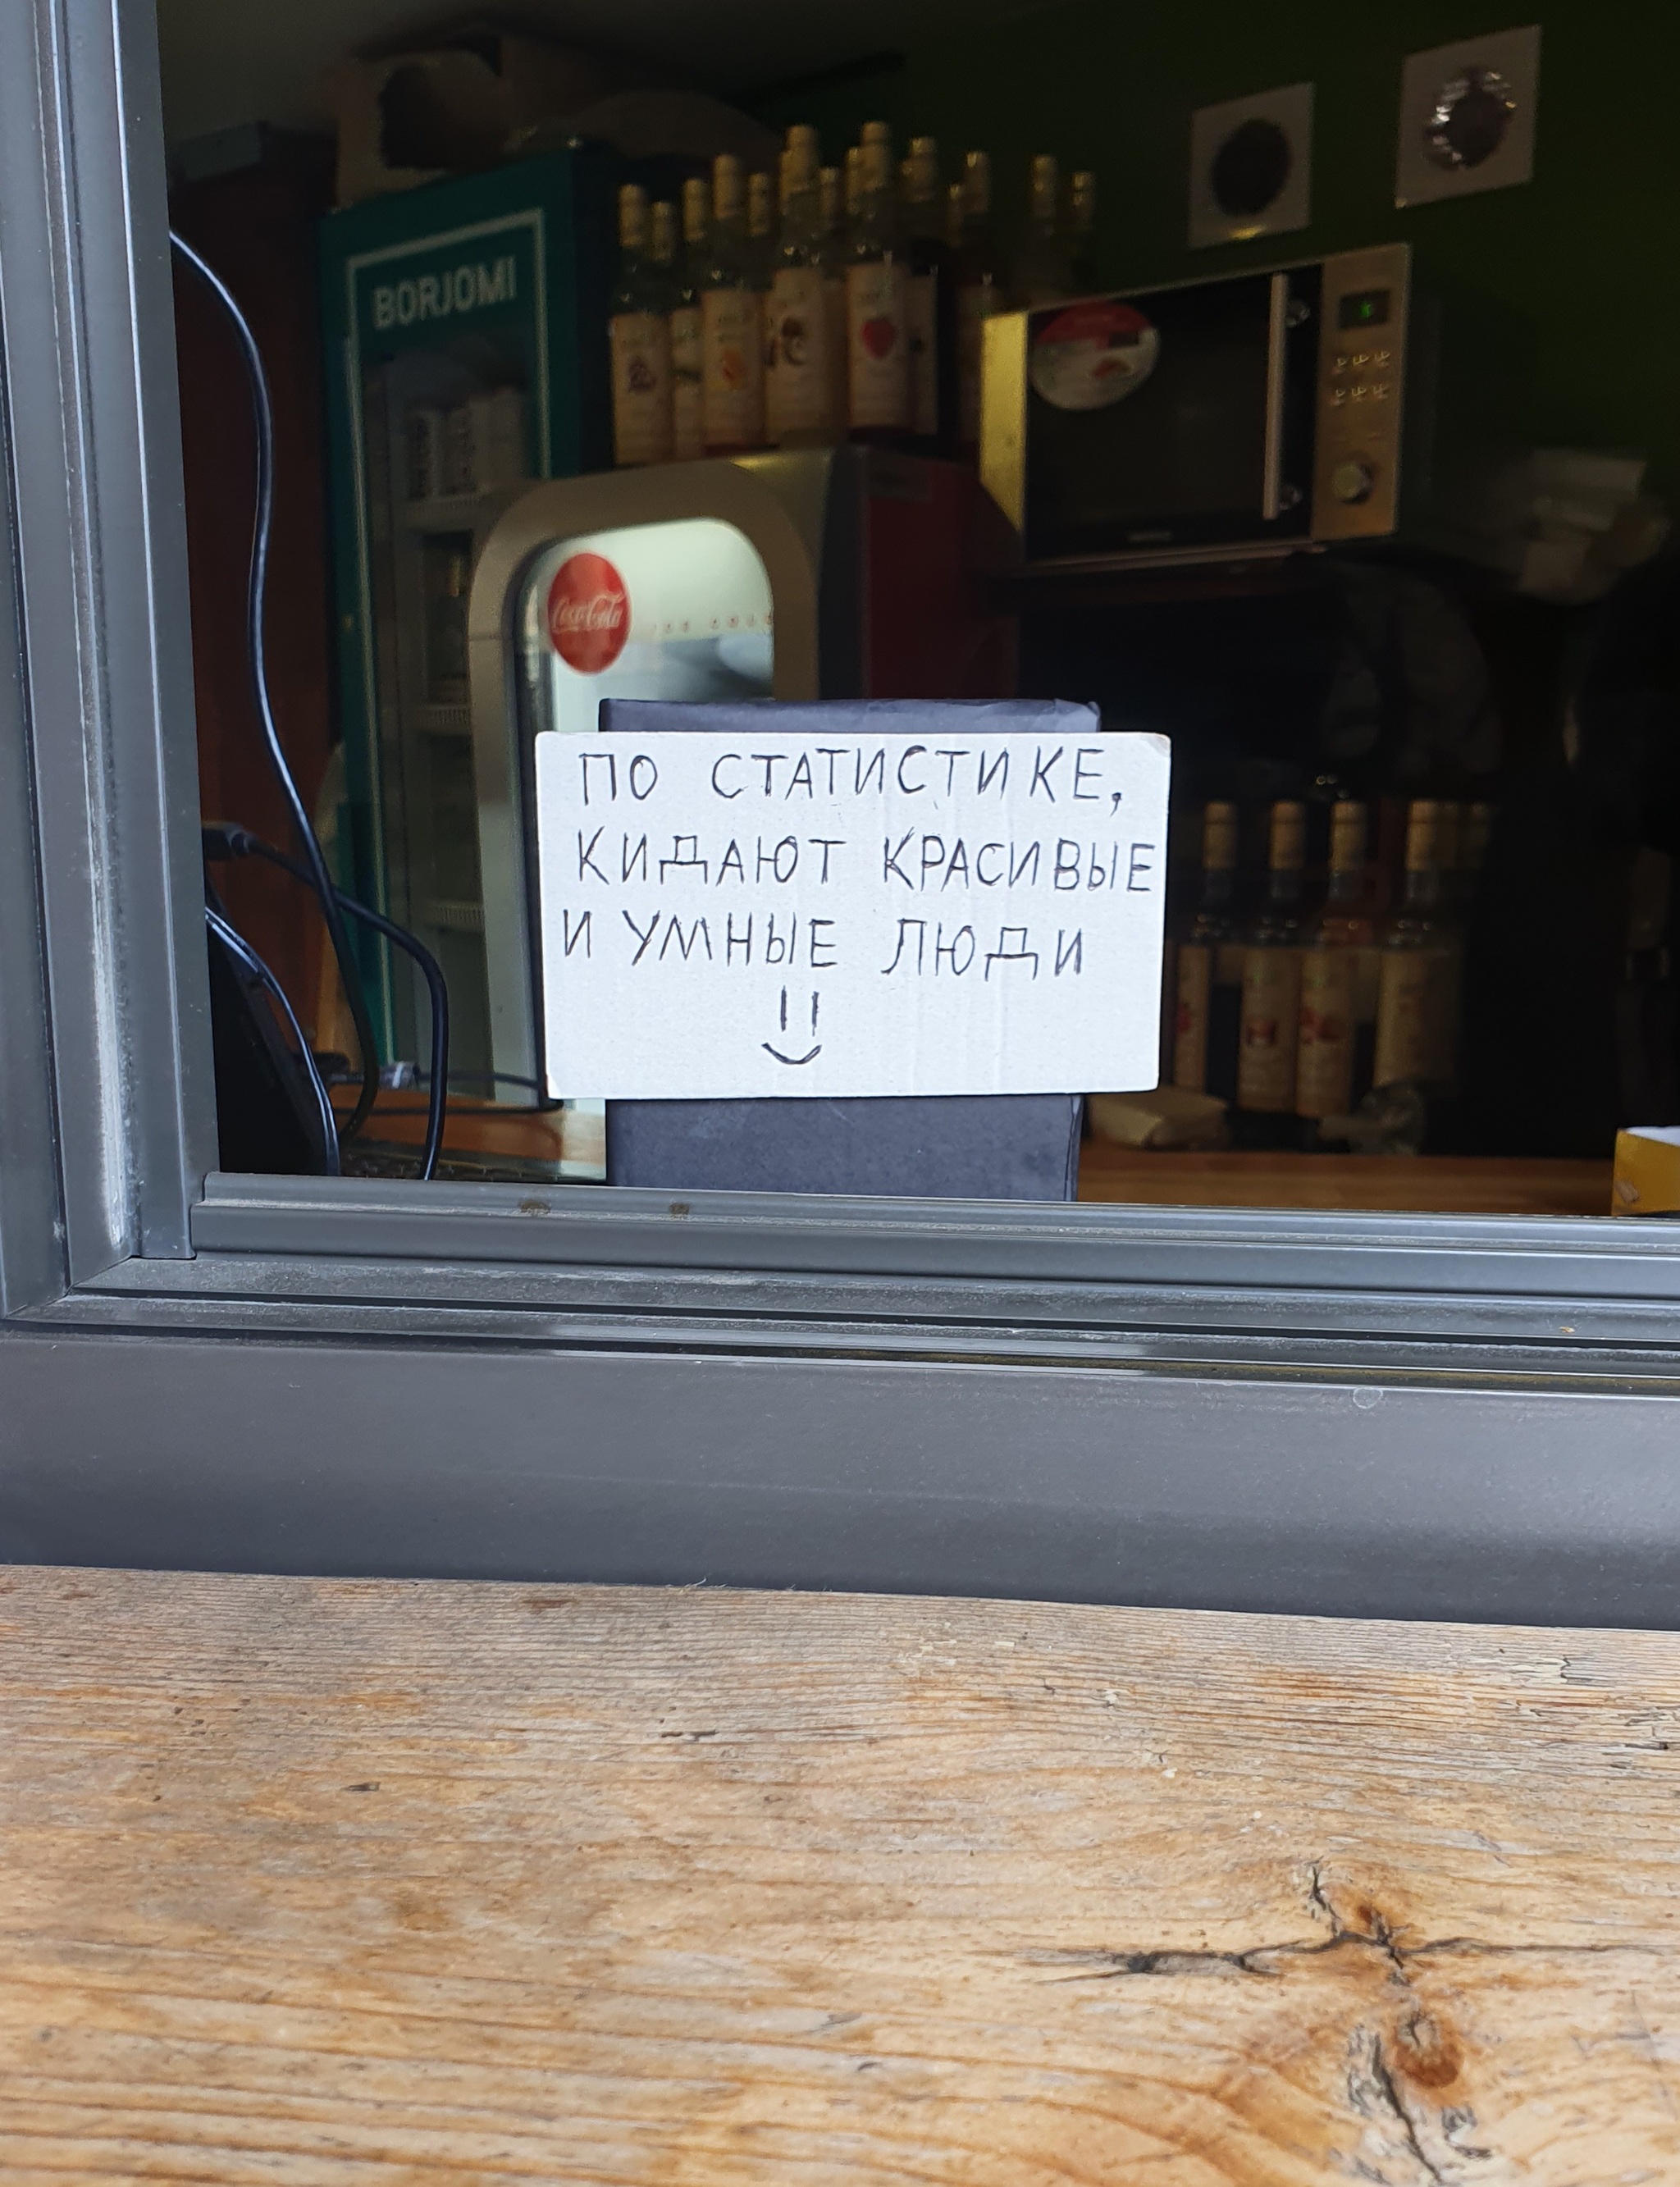 BORJOMI
Coca-Cola
ICE COLD
ПО СТАТИСТИКЕ,
КИДАЮТ КРАСИВЫЕ
И УМНЫЕ ЛЮДИ